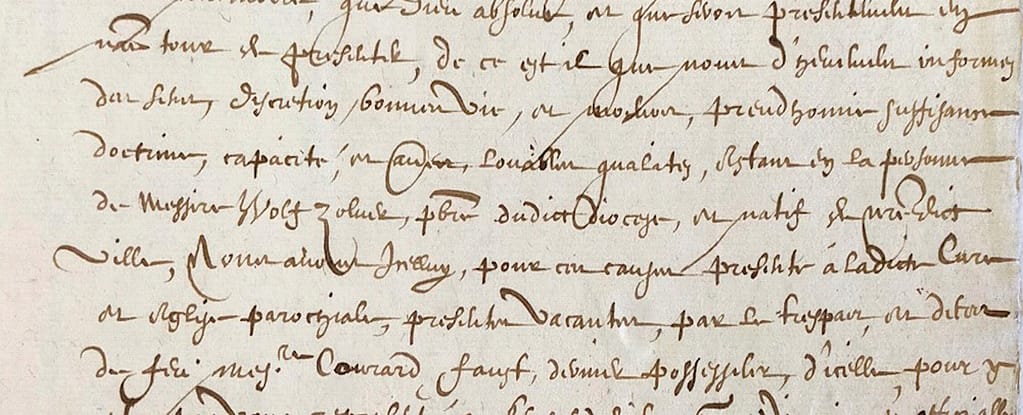 que Dieu absolve, et que soit presentement en
n̄re tour de presenter, de ce est il que nous d'heuement informez
des sens, discretion, bonnes vie, et mœurs, preudhomie suffisance
doctrine, capacité, et autres louables qualitez, estant en la personne
de Messire Wolf, pb̄re dudict diocese, et natif de n̄redicte
ville, Nous avons Icelluy, pour ces causes presenté à ladicte Cure
et eglise parochiale, presentement vacante, par le trespas, et deces
de feu mes.re Conrard Faust, dernier possesseur, d'icelle, pour y